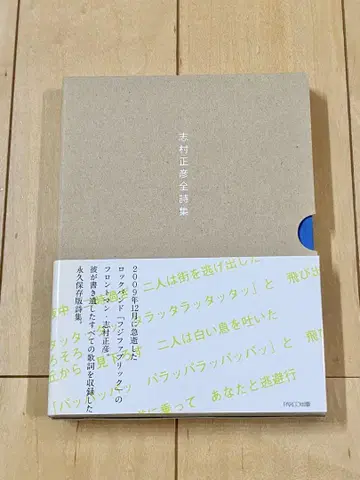 志村正彦全詩集
2009年12月に急逝した
ロックバンド「フジファブリック」の
フロントマン・志村正彦。
彼が書き遺したすべての歌詞を収録した
永久保存版詩集。
二人は街を逃げ出した
ラッタラッタッタッ」と 飛び出
二人は白い息を吐いた
「パッパッパッ パラッパラッパッパッ」と 飛
乗って あなたと逃避行